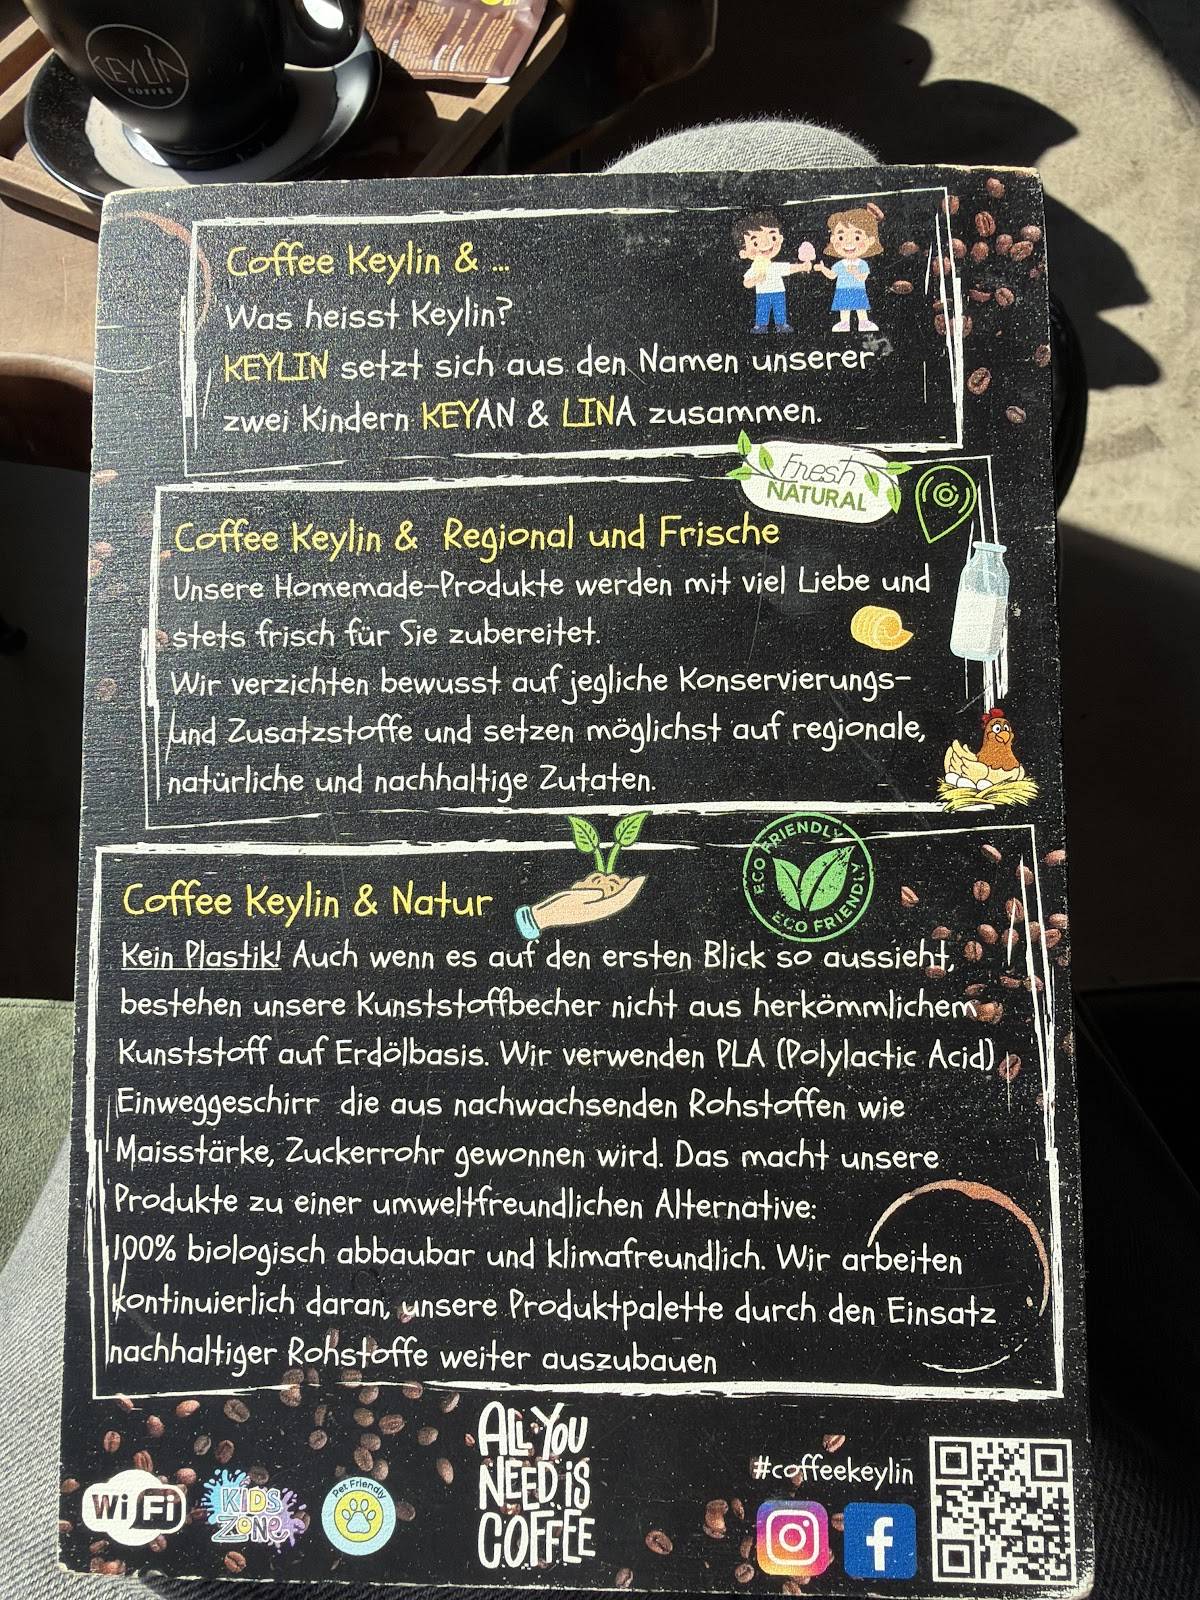 KEYLIN
COFFEE
Coffee Keylin & ...
Was heisst Keylin?
KEYLIN setzt sich aus den Namen unserer
zwei Kindern KEYAN & LINA zusammen.
Fresh
NATURAL
Coffee Keylin & Regional und Frische
Unsere Homemade-Produkte werden mit viel Liebe und
stets frisch für Sie zubereitet.
Wir verzichten bewusst auf jegliche Konservierungs-
und Zusatzstoffe und setzen möglichst auf regionale,
natürliche und nachhaltige Zutaten.
ECO FRIENDLY
ECO FRIENDLY
Coffee Keylin & Natur
Kein Plastik! Auch wenn es auf den ersten Blick so aussieht,
bestehen unsere Kunststoffbecher nicht aus herkömmlichem
Kunststoff auf Erdölbasis. Wir verwenden PLA (Polylactic Acid)
Einweggeschirr die aus nachwachsenden Rohstoffen wie
Maisstärke, Zuckerrohr gewonnen wird. Das macht unsere
Produkte zu einer umweltfreundlichen Alternative:
100% biologisch abbaubar und klimafreundlich. Wir arbeiten
kontinuierlich daran, unsere Produktpalette durch den Einsatz
nachhaltiger Rohstoffe weiter auszubauen
WiFi
KIDS
ZONE
Pet Friendly
ALL YOU
NEED IS
COFFEE
#coffeekeylin